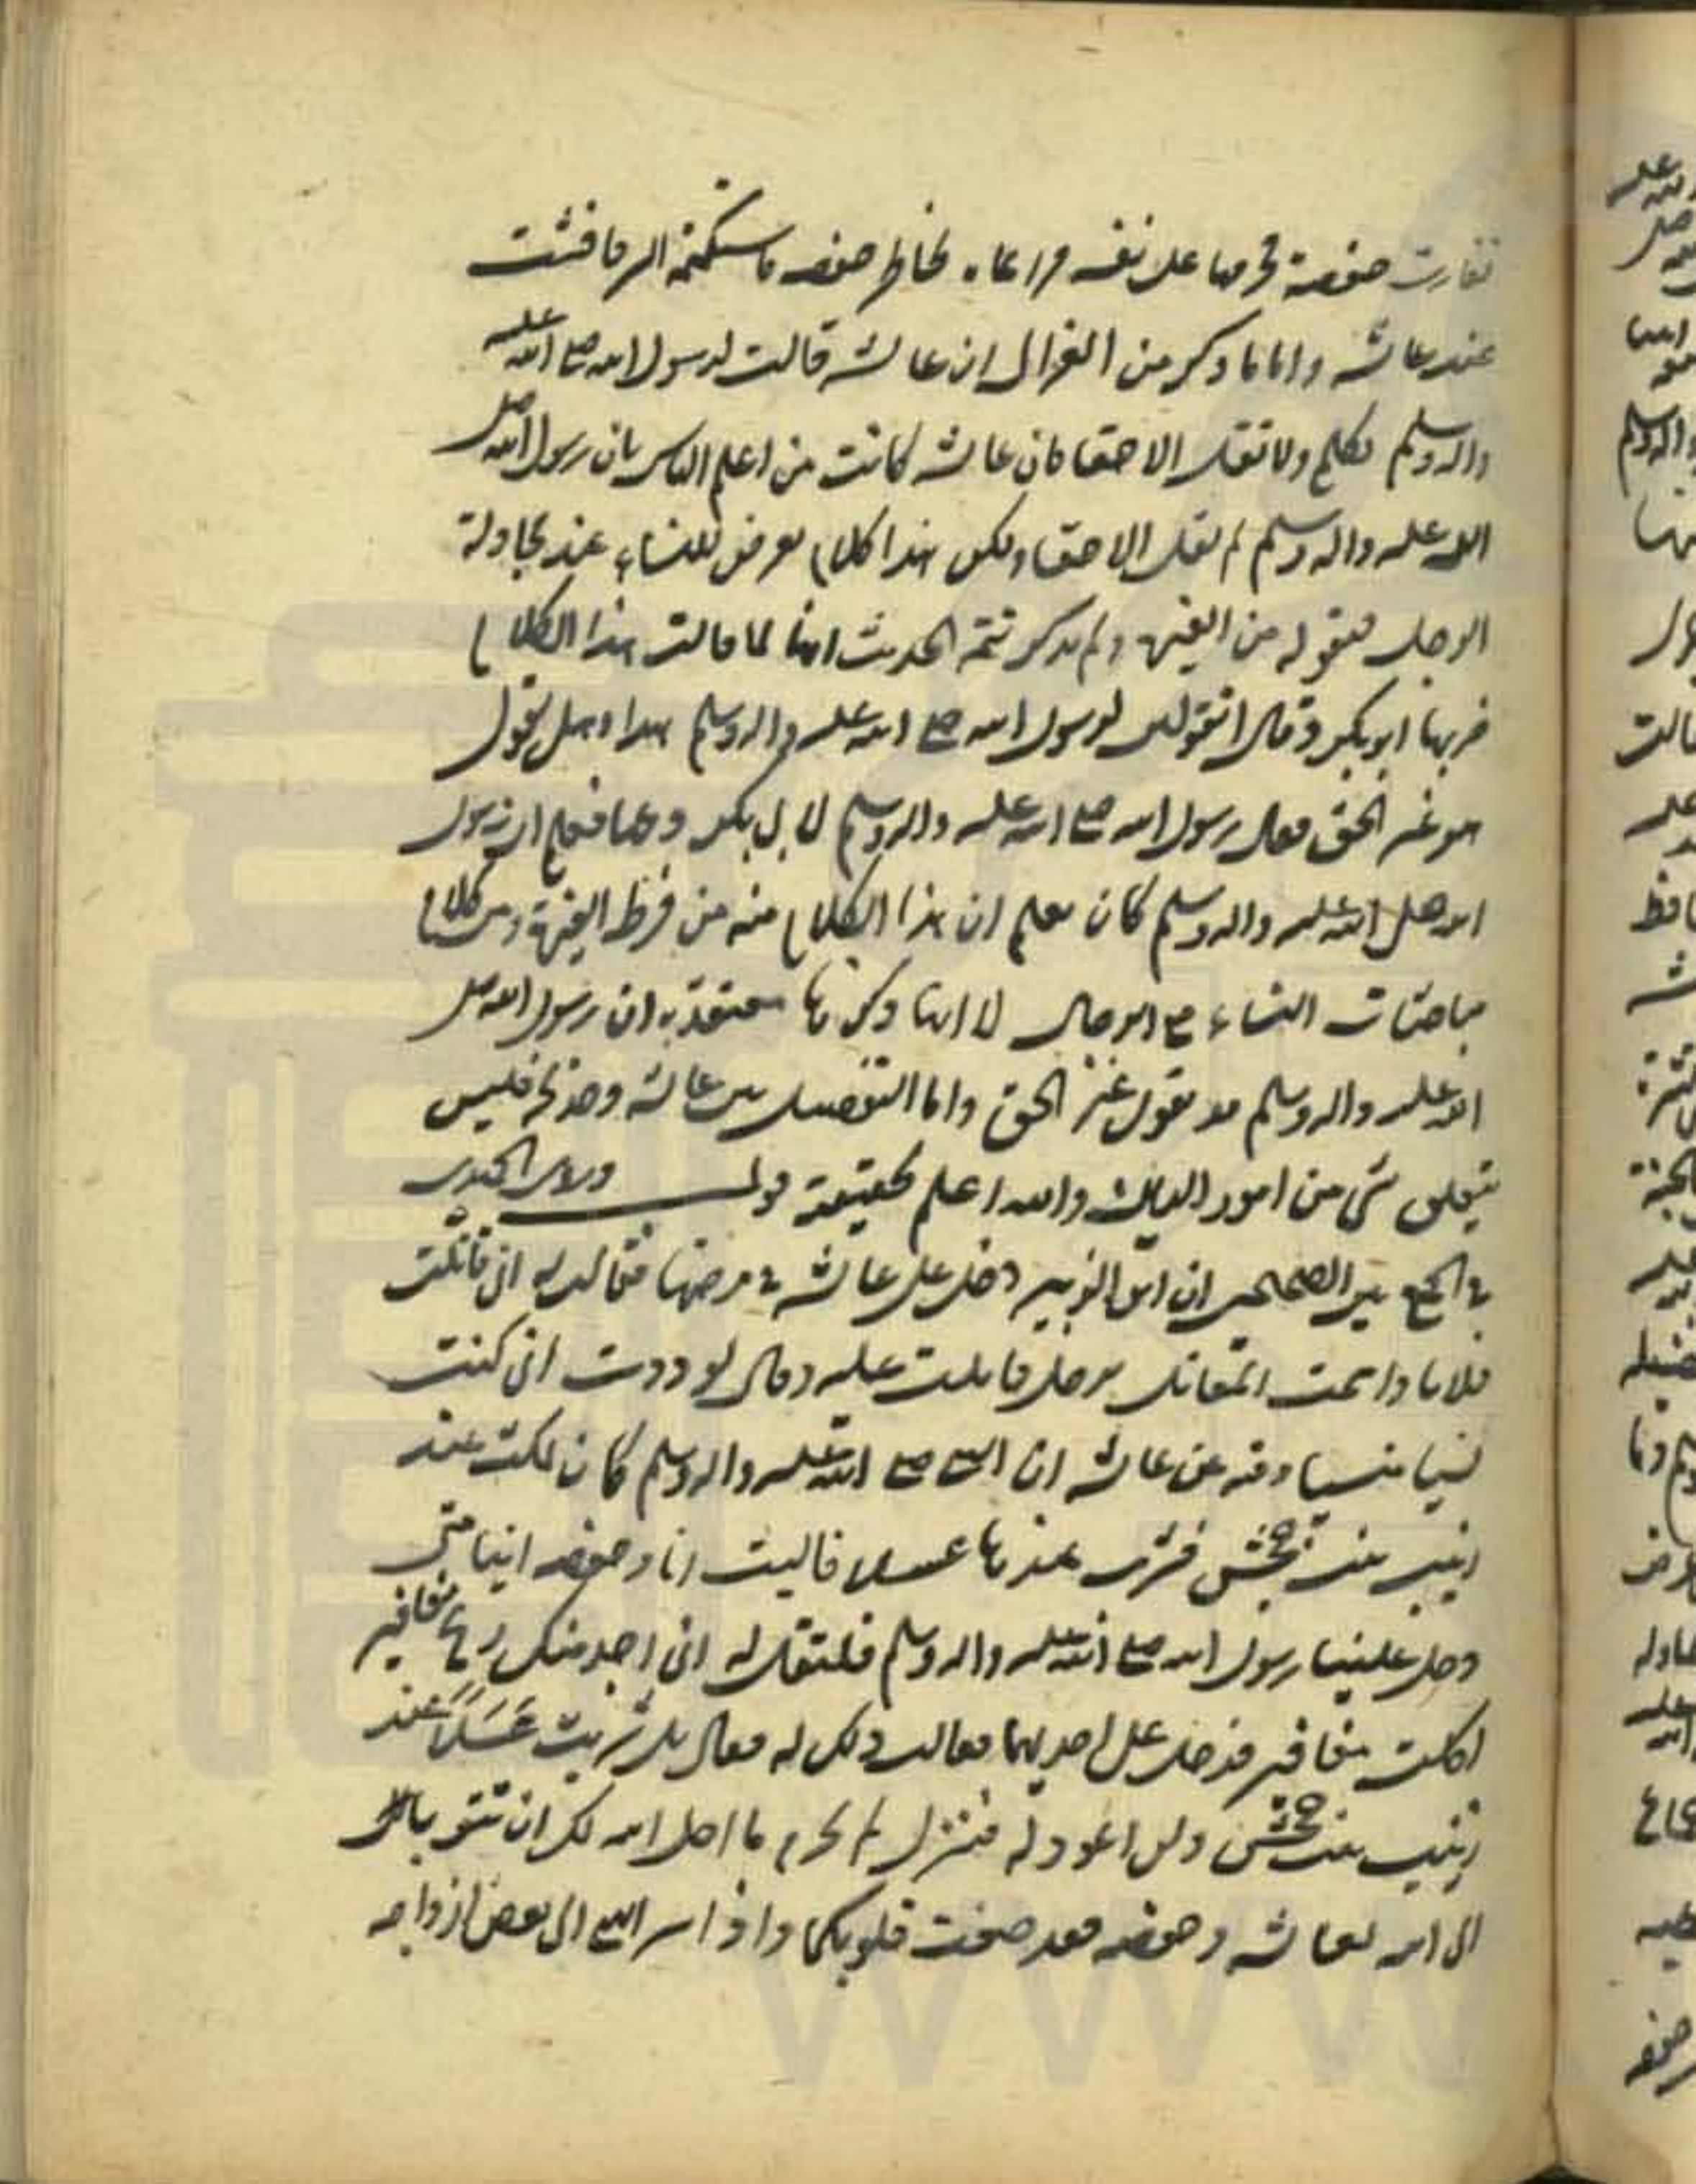 فغارت حفصة فحرمها على نفسه مراعاه لخاطر حفصه فاستكتمه السر فافشت
عند عائشه واما ما ذكر من الغزالى ان عائشه قالت لرسول الله صلى الله عليه
واله وسلم تكلم ولا تقل الا حقا فان عائشه كانت من اعلم الناس بان رسول الله صلى
الله عليه واله وسلم لم يقل الا حقا ولكن هذا كلام يعرض للنساء عند مجاولة
الرجل فيقوله من الغيرة ولم يذكر تتمة الحديث انها لما قالت هذا الكلام
ضربها ابو بكر وقال اتقولين لرسول الله صلى الله عليه واله وسلم هذا وهل يقول
هو غير الحق فقال رسول الله صلى الله عليه واله وسلم لا بى بكر دعها فعلم ان رسول
الله صلى الله عليه واله وسلم كان يعلم ان هذا الكلام منه من فرط الغيرة ومن كلام
مباحثات النساء مع الرجال لا انها ذكرتها معتقدة بان رسول الله صلى
الله عليه واله وسلم قد يقول غير الحق واما التفضيل بين عائشه وخديجه فليس
يتعلق بشى من امور الديانه والله اعلم بحقيقة قوله وروى الحميدى
فى الجمع بين الصحيحين ان ابن الزبير دخل على عائشه فى مرضها فقالت له انى قاتلت
فلانا وسمت المقاتل برجل قاتلت عليه وقال لو ددت انى كنت
نسيا منسيا وفيه عن عائشه ان النبى صلى الله عليه واله وسلم كان يمكث عند
زينب بنت جحش فشرب عندها عسلا فاليت انا وحفصه اينا متى
دخل علينا رسول الله صلى الله عليه واله وسلم فلتقل له انى اجد منك ريح مغافير
اكلت مغافير فدخل على احديهما فقالت ذلك له فقال بل شربت عَسَلاً عند
زينب بنت جحش ولن اعود له فنزل لم تحرم ما احل الله لك ان تتوبا
الى الله لعائشه وحفصه فقد صغت قلوبكما واذ اسر النبى الى بعض ازواجه